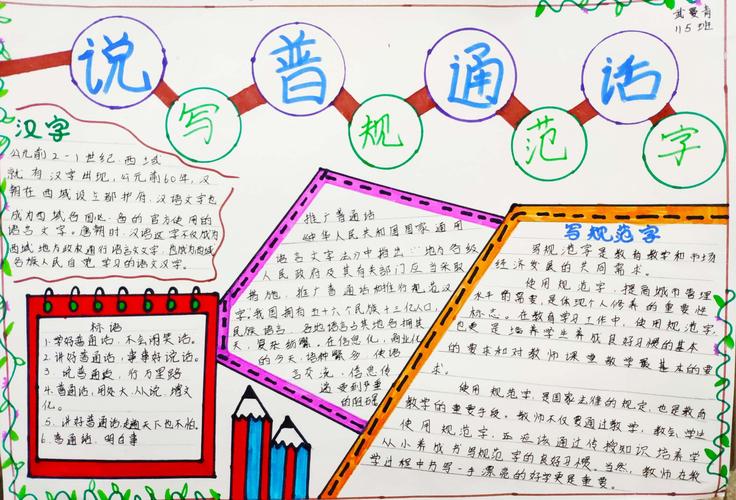 说普通话
写规范字
115班
汉字
公元前2-1世纪,西域
就有汉字出现,公元前60年,汉
朝在西域设立都护府,汉语文字也
成为西域各国
的官方使用的
语言文字。唐朝时,汉语汉字不仅成为
西域地方政权通行语言文字,也成为西域
各族人民自觉学习的语文汉字。
标语
1.学好普通话,不会闹笑话。
2.讲好普通话,事事好说话。
3.说普通话,行万里路
4.普通话,用处大,人人说,增文
化。
5.讲好普通话走遍天下也不怕。
6.普通话,明白事
推广普通话
《中华人民共和国国家通用
语言文字法》中指出:"地方各级
人民政府及其有关部门应当采取
措施,推广普通话和推行规范汉
字,"我国拥有五十六个民族十三亿人口,
民族语言、各地语言与其地名拥其
天,复杂
的今天,语种繁多,使语
言交流、信息传
递受到严重
的阻碍
写规范字
写规范字是教育教学和市场
经济发展的共同需求。
使用规范字,提高城市管理
水平的需要,是体现个人修养的重要性
标志。在教育学习工作中,使用规范字,
也更是培养学生养成良好习惯的基本
的要求和对教师课堂教学最基本的要
求。
使用规范字,是国家法律的规定,也是教育
教学的重要手段。教师不仅要通过教学,教会学生
使用规范字,更应该通过传授知识培养学
从小养成书写规范字的良好习惯。当然,教师在教
学过程中书写一手漂亮的好字更是重要。